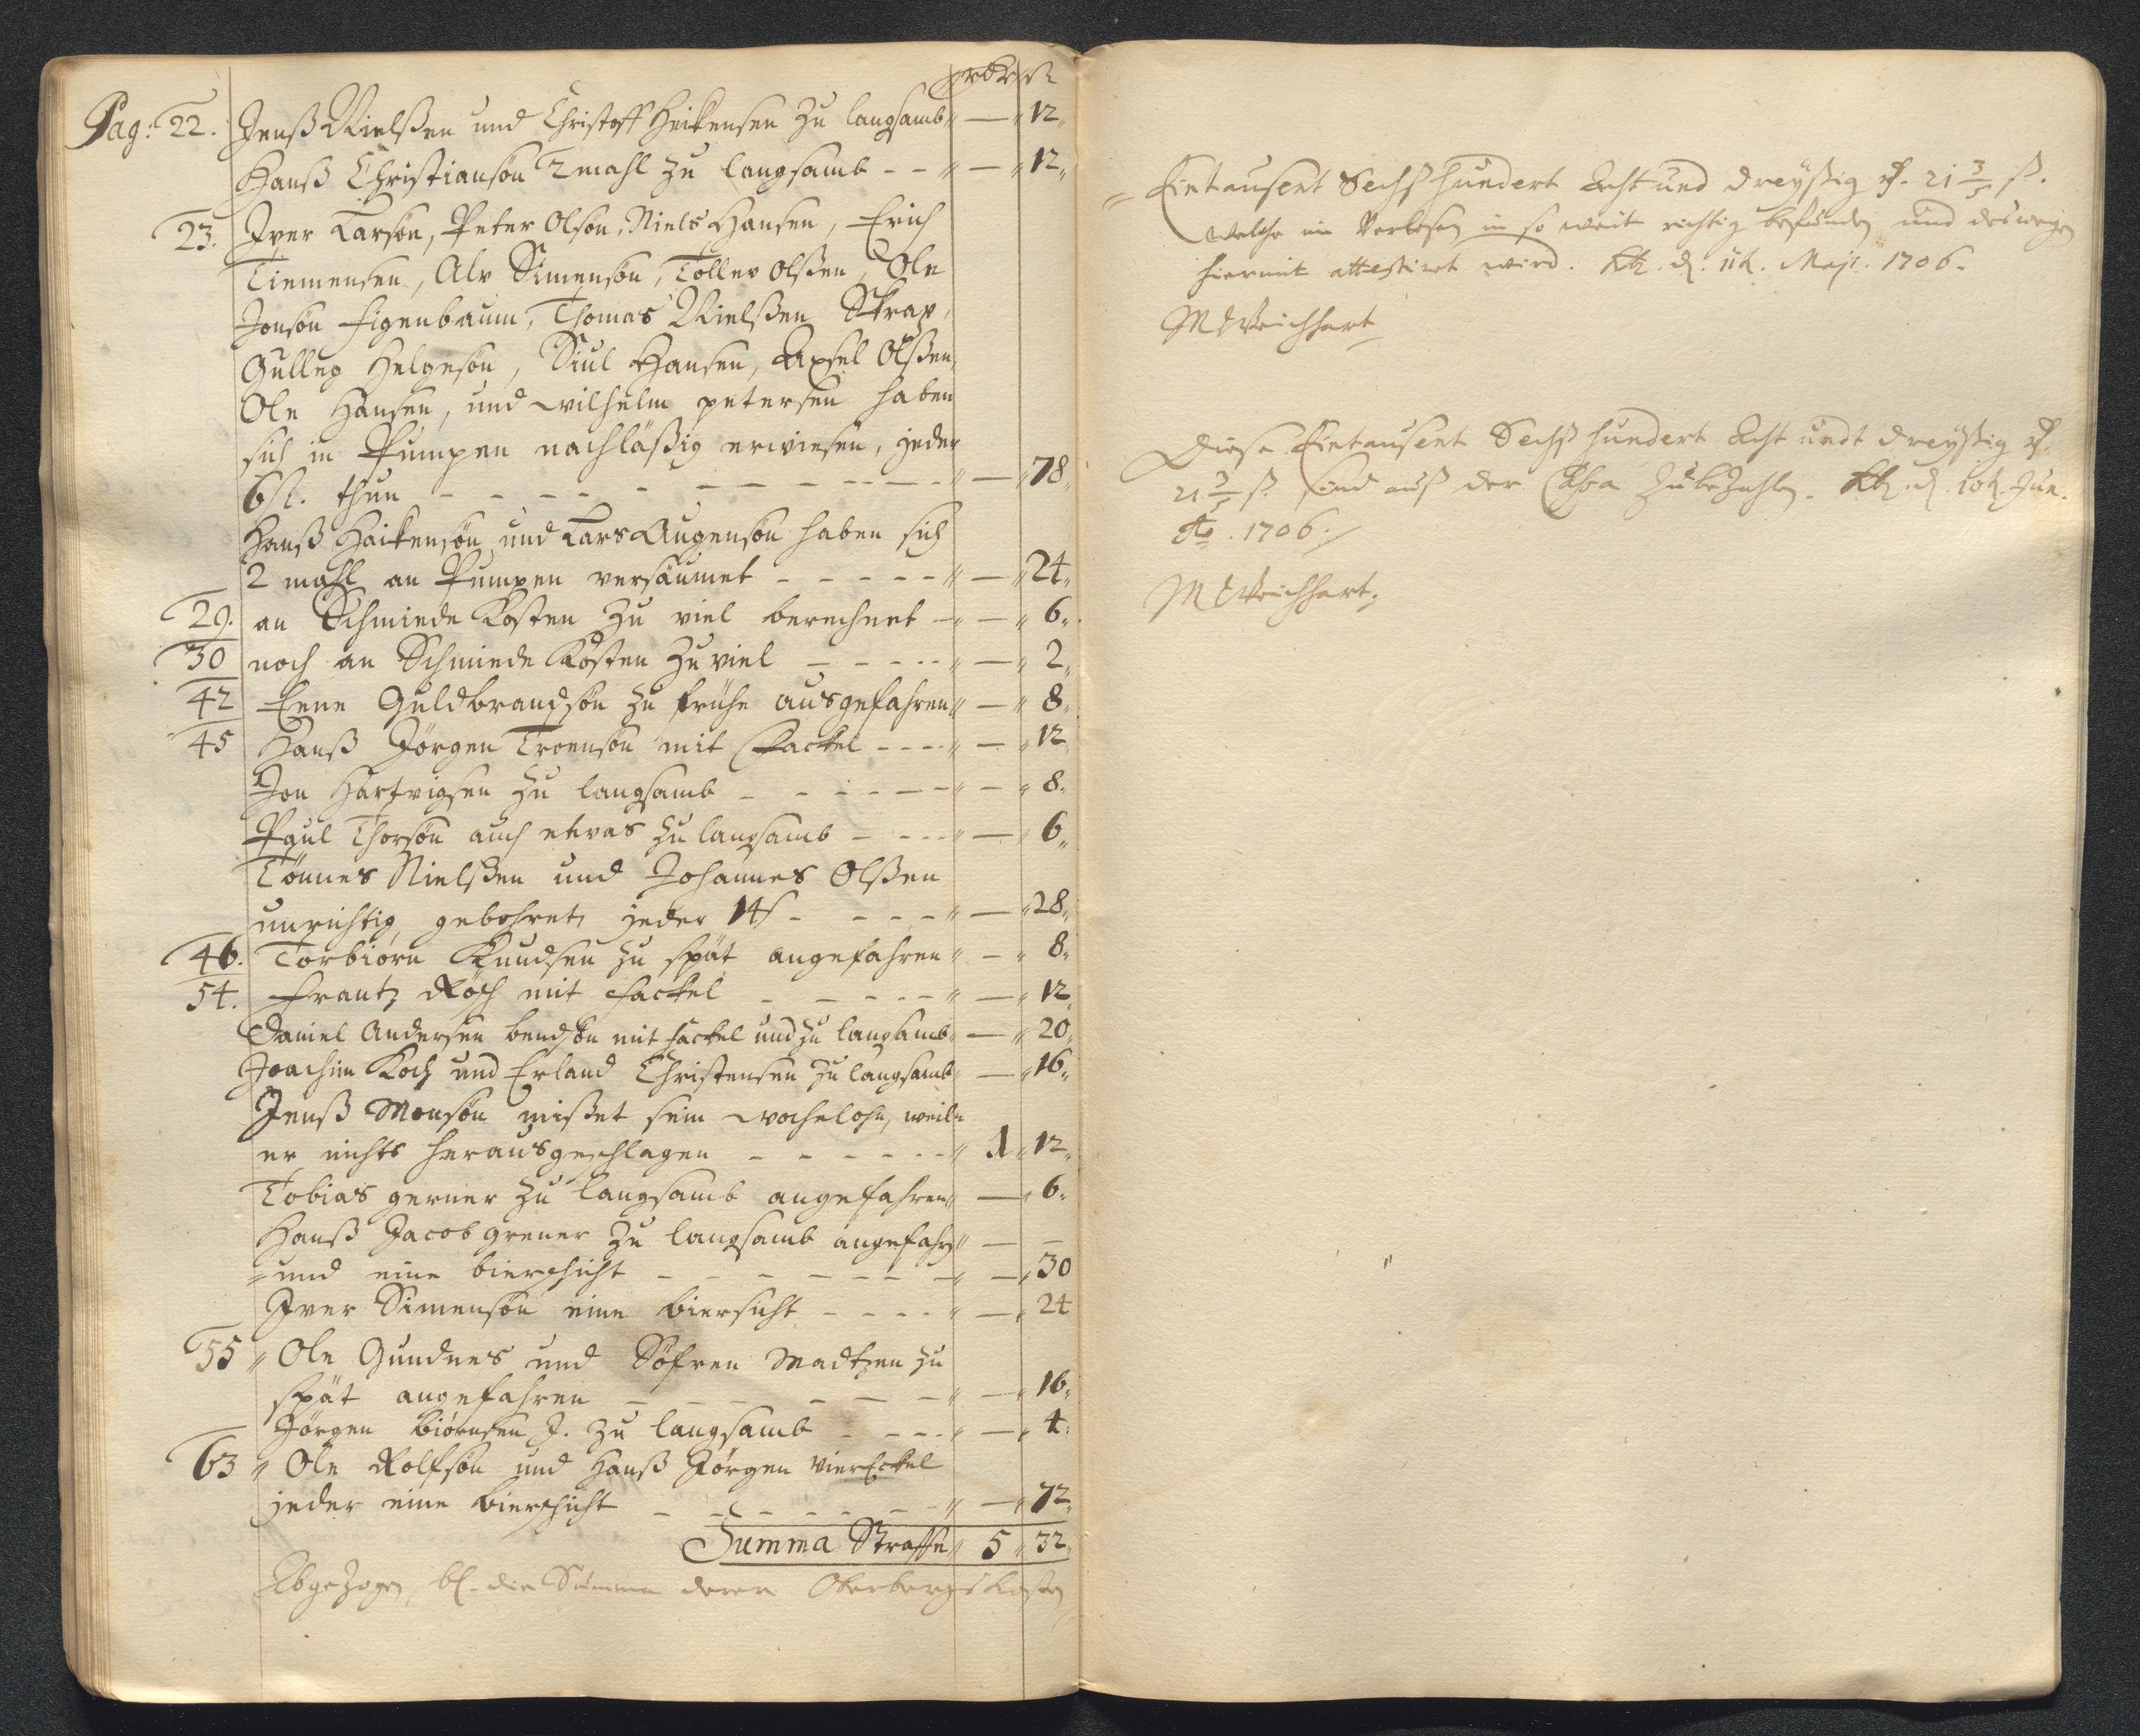 rdr ß
Pag: 22. Jenß Nielßen und Christoff Heitensen zu langsamb " — " 12 "
Hanß Christiansøn 2 mahl zu langsamb - - " — " 12 "
23. Iver Larsøn, Peter Olsøn, Niels Hansen, Erich
Tiemensen, Alv Simensøn, Tollev Olßen, Ole
Jonsøn Eigenbaum, Thomas Nielßen Skrap,
Gulleg Helgesøn, Siul Hansen, Axsel Olßen,
Ole Hansen, und Wilhelm petersen haben
sich in Pumpen nachläßig erwiesen, jeder
6 ß. thun - - - - - - - - - " — " 78 "
Hanß Haitensøn und Lars Augensøn haben sich
2 mahl an Pumpen versäumet - - - - - " — " 24 "
29. an Schmiede Kosten zu viel berechnet - " — " 6 "
30 noch an Schmiede Kosten zu viel - - - - - " — " 2 "
42 Enne Guldbrandsøn zu frühe ausgefahren " — " 8 "
45 Hanß Jörgen Troensøn mit Fackel - - - - " — " 12 "
Jon Hartvigsen zu langsamb - - - - - - " — " 8 "
Paul Thorsøn auch etwas zu langsamb - - - - " — " 6 "
Tönnes Nielßen und Johannes Olßen
unrichtig gebohret, jeder 14 ß - - - - - " — " 28 "
46. Torbiørn Knudsen zu spät angefahren " — " 8 "
54. Frantz Rösch mit Fackel - - - - - " — " 12 "
Daniel Andersen bendsøn mit Fackel und zu langsamb " — " 20 "
Joachim Koch und Erland Christensen zu langsamb " — " 16 "
Jenß Monsøn mißet sein Wochelohn, weil
er nichts herausgeschlagen - - - - - - " 1 " 12 "
Tobias gerner zu langsamb angefahren " — " 6 "
Hanß Jacob grener zu langsamb angefahren " — —
und eine bierschicht - - - - - - - " — " 30
Iver Simensøn eine biersicht - - - - " — " 24
55 " Ole Gundnes und Söfren Madtzen zu
spät angefahren - - - - - - - " — " 16 "
Jörgen Biørnsen J. zu langsamb - - - - " — " 4 "
63 " Ole Rolfsøn und Hanß Jörgen VierEckel
jeder eine bierschicht - - - - - - " — " 72 "
Summa Straffe " 5 " 32 "
Abgezogen, bl. die Summa derer Oberbergs Kosten
Eintausent Sechß hundert Acht und dreyßig rd. 21 3/5 ß.
Welche im Verlesen in so weit richtig befunden und deswegen
hiermit attestiret wird. Kb. d. 11t. Maji. 1706.
M Weichhart
Diese Eintausent Sechß hundert Acht undt dreyßig rd.
21 3/5 ß. sind auß der Cassa zubezahlen. Kb. d. 10t. Jun.
Ao. 1706.
M Weichhart.